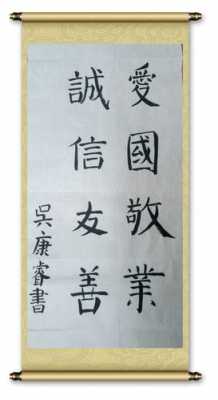 愛國敬業
誠信友善
吳康睿書